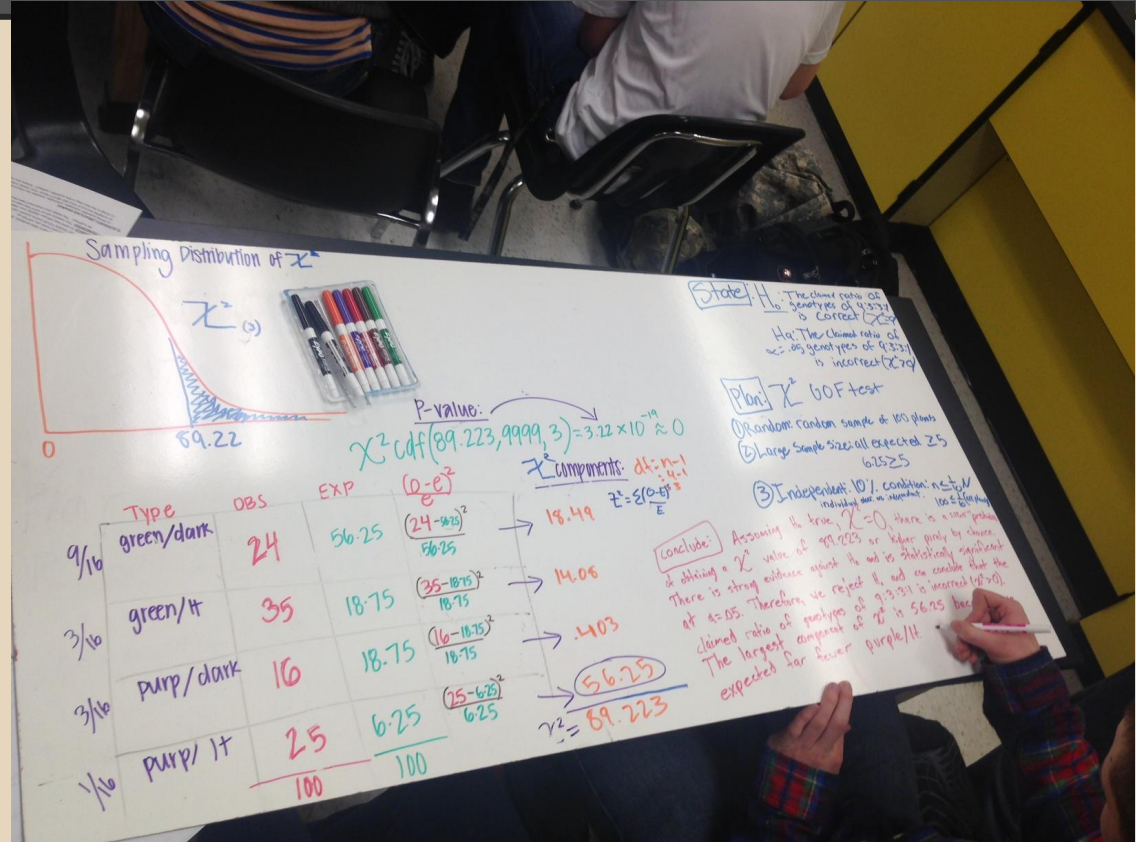 Sampling Distribution of χ²
χ² (3)
0
89.22
P-value:
χ²cdf(89.223,9999,3)=3.22×10⁻¹⁹≈0
χ² components:
df=n-1
=4-1
=3
χ²=Σ(O-E)²/E
TYPE OBS EXP (o-e)²/e
9/16 green/dark 24 56.25 (24-56.25)²/56.25 → 18.49
3/16 green/lt 35 18.75 (35-18.75)²/18.75 → 14.08
3/16 purp/dark 16 18.75 (16-18.75)²/18.75 → .403
1/16 purp/lt 25 6.25 (25-6.25)²/6.25 → 56.25
100 100
χ²= 89.223
State: H₀: The claimed ratio of
genotypes of 9:3:3:1
is correct (χ²=
Ha: The claimed ratio of
α=.05 genotypes of 9:3:3:1
is incorrect (χ²>0)
Plan: χ² GOF test
① Random: random sample of 100 plants
② Large Sample Size: all expected ≥5
6.25≥5
③ Independent: 10% condition: n≤
individual are independent. 100 ≤
Conclude: Assuming H₀ true, χ²=0, there is a
of obtaining a χ² value of 89.223 or higher purely by chance.
There is strong evidence against H₀ and is statistically significant
at α=.05. Therefore, we reject H₀ and can conclude that the
claimed ratio of genotypes of 9:3:3:1 is incorrect (χ²>0).
The largest component of χ² is 56.25
expected far fewer purple/lt